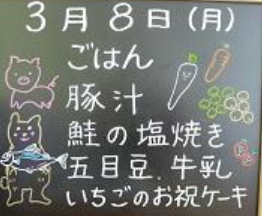 3月8日(月)
ごはん
豚汁
鮭の塩焼き
五目豆、牛乳
いちごのお祝ケーキ